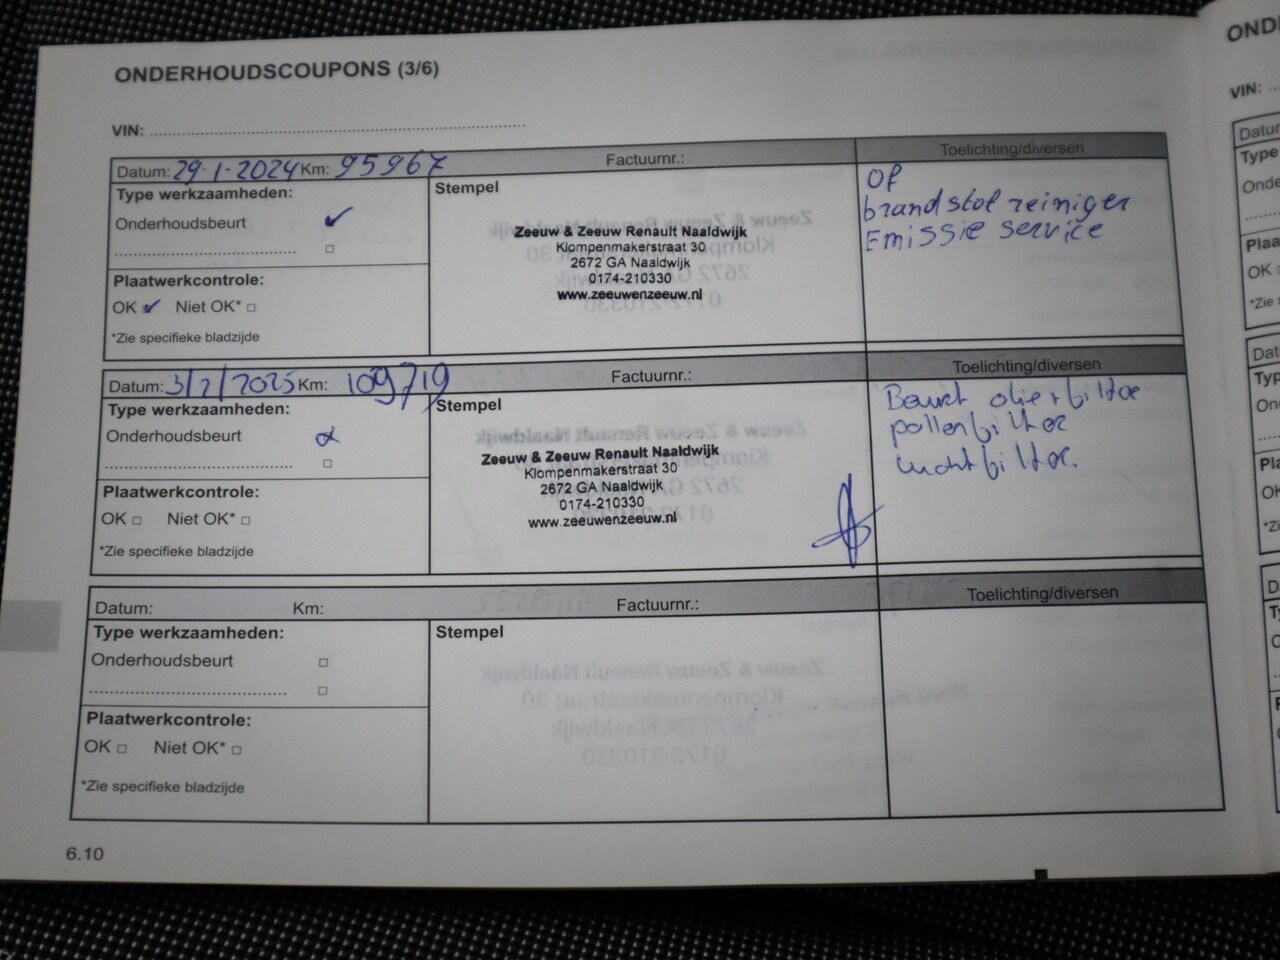 ONDERHOUDSCOUPONS (3/6)
VIN:
Datum: 29-1-2024 Km: 95967 Factuurnr.: Toelichting/diversen
Type werkzaamheden:
Onderhoudsbeurt
Plaatwerkcontrole:
OK Niet OK*
*Zie specifieke bladzijde
Stempel
Zeeuw & Zeeuw Renault Naaldwijk
Klompenmakerstraat 30
2672 GA Naaldwijk
0174-210330
www.zeeuwenzeeuw.nl
OF
brandstof reiniger
Emissie service
Datum: 3/2/2025 Km: 109719 Factuurnr.: Toelichting/diversen
Type werkzaamheden:
Onderhoudsbeurt
Plaatwerkcontrole:
OK Niet OK*
*Zie specifieke bladzijde
Stempel
Zeeuw & Zeeuw Renault Naaldwijk
Klompenmakerstraat 30
2672 GA Naaldwijk
0174-210330
www.zeeuwenzeeuw.nl
Beurt olie+filter
pollenfilter
luchtfilter.
Datum: Km: Factuurnr.: Toelichting/diversen
Type werkzaamheden:
Onderhoudsbeurt
Plaatwerkcontrole:
OK Niet OK*
*Zie specifieke bladzijde
Stempel
6.10
VIN: